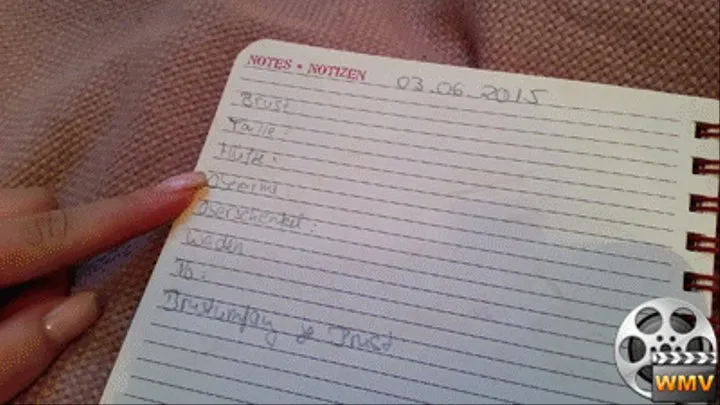 NOTES • NOTIZEN 03.06.2015
Brust
Taille:
Hüfte:
Oberarme:
Oberschenkel:
Waden
Po:
Brustumfang & Brust
WMV